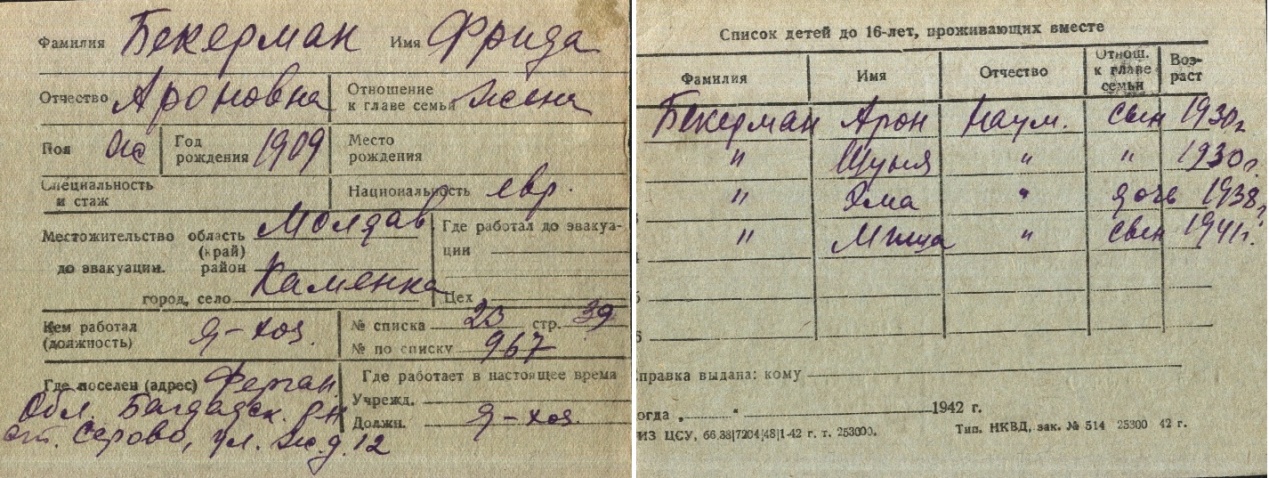 Фамилия Бекерман Имя Фрида
Отчество Ароновна Отношение к главе семьи жена
Пол Год рождения 1909 Место рождения
Специальность и стаж Национальность евр.
Местожительство область (край) Молдав Где работал до эвакуа-
до эвакуации. район ции
город, село Каменка Цех
Кем работал (должность) д-хоз. № списка 23 стр. 39
№ по списку 967
Где поселен (адрес) Ферган. Где работает в настоящее время
Обл. Багдадск. р-н Учрежд.
ст. Серово, ул. д. 12 Должн. д-хоз.
Список детей до 16-лет, проживающих вместе
Фамилия Имя Отчество Отнош. к главе семьи Воз-раст
Бекерман Арон Наум. сын 1930г
" Шуня " " 1930г.
" Эма " дочь 1938г
" Миша " сын 1941г.
3
4
5
6
правка выдана: кому
огда „ " 1942 г.
ИЗ ЦСУ, 66,38|7204|48|1-42 г. т. 253000. Тип. НКВД, зак. № 514 25300 42 г.